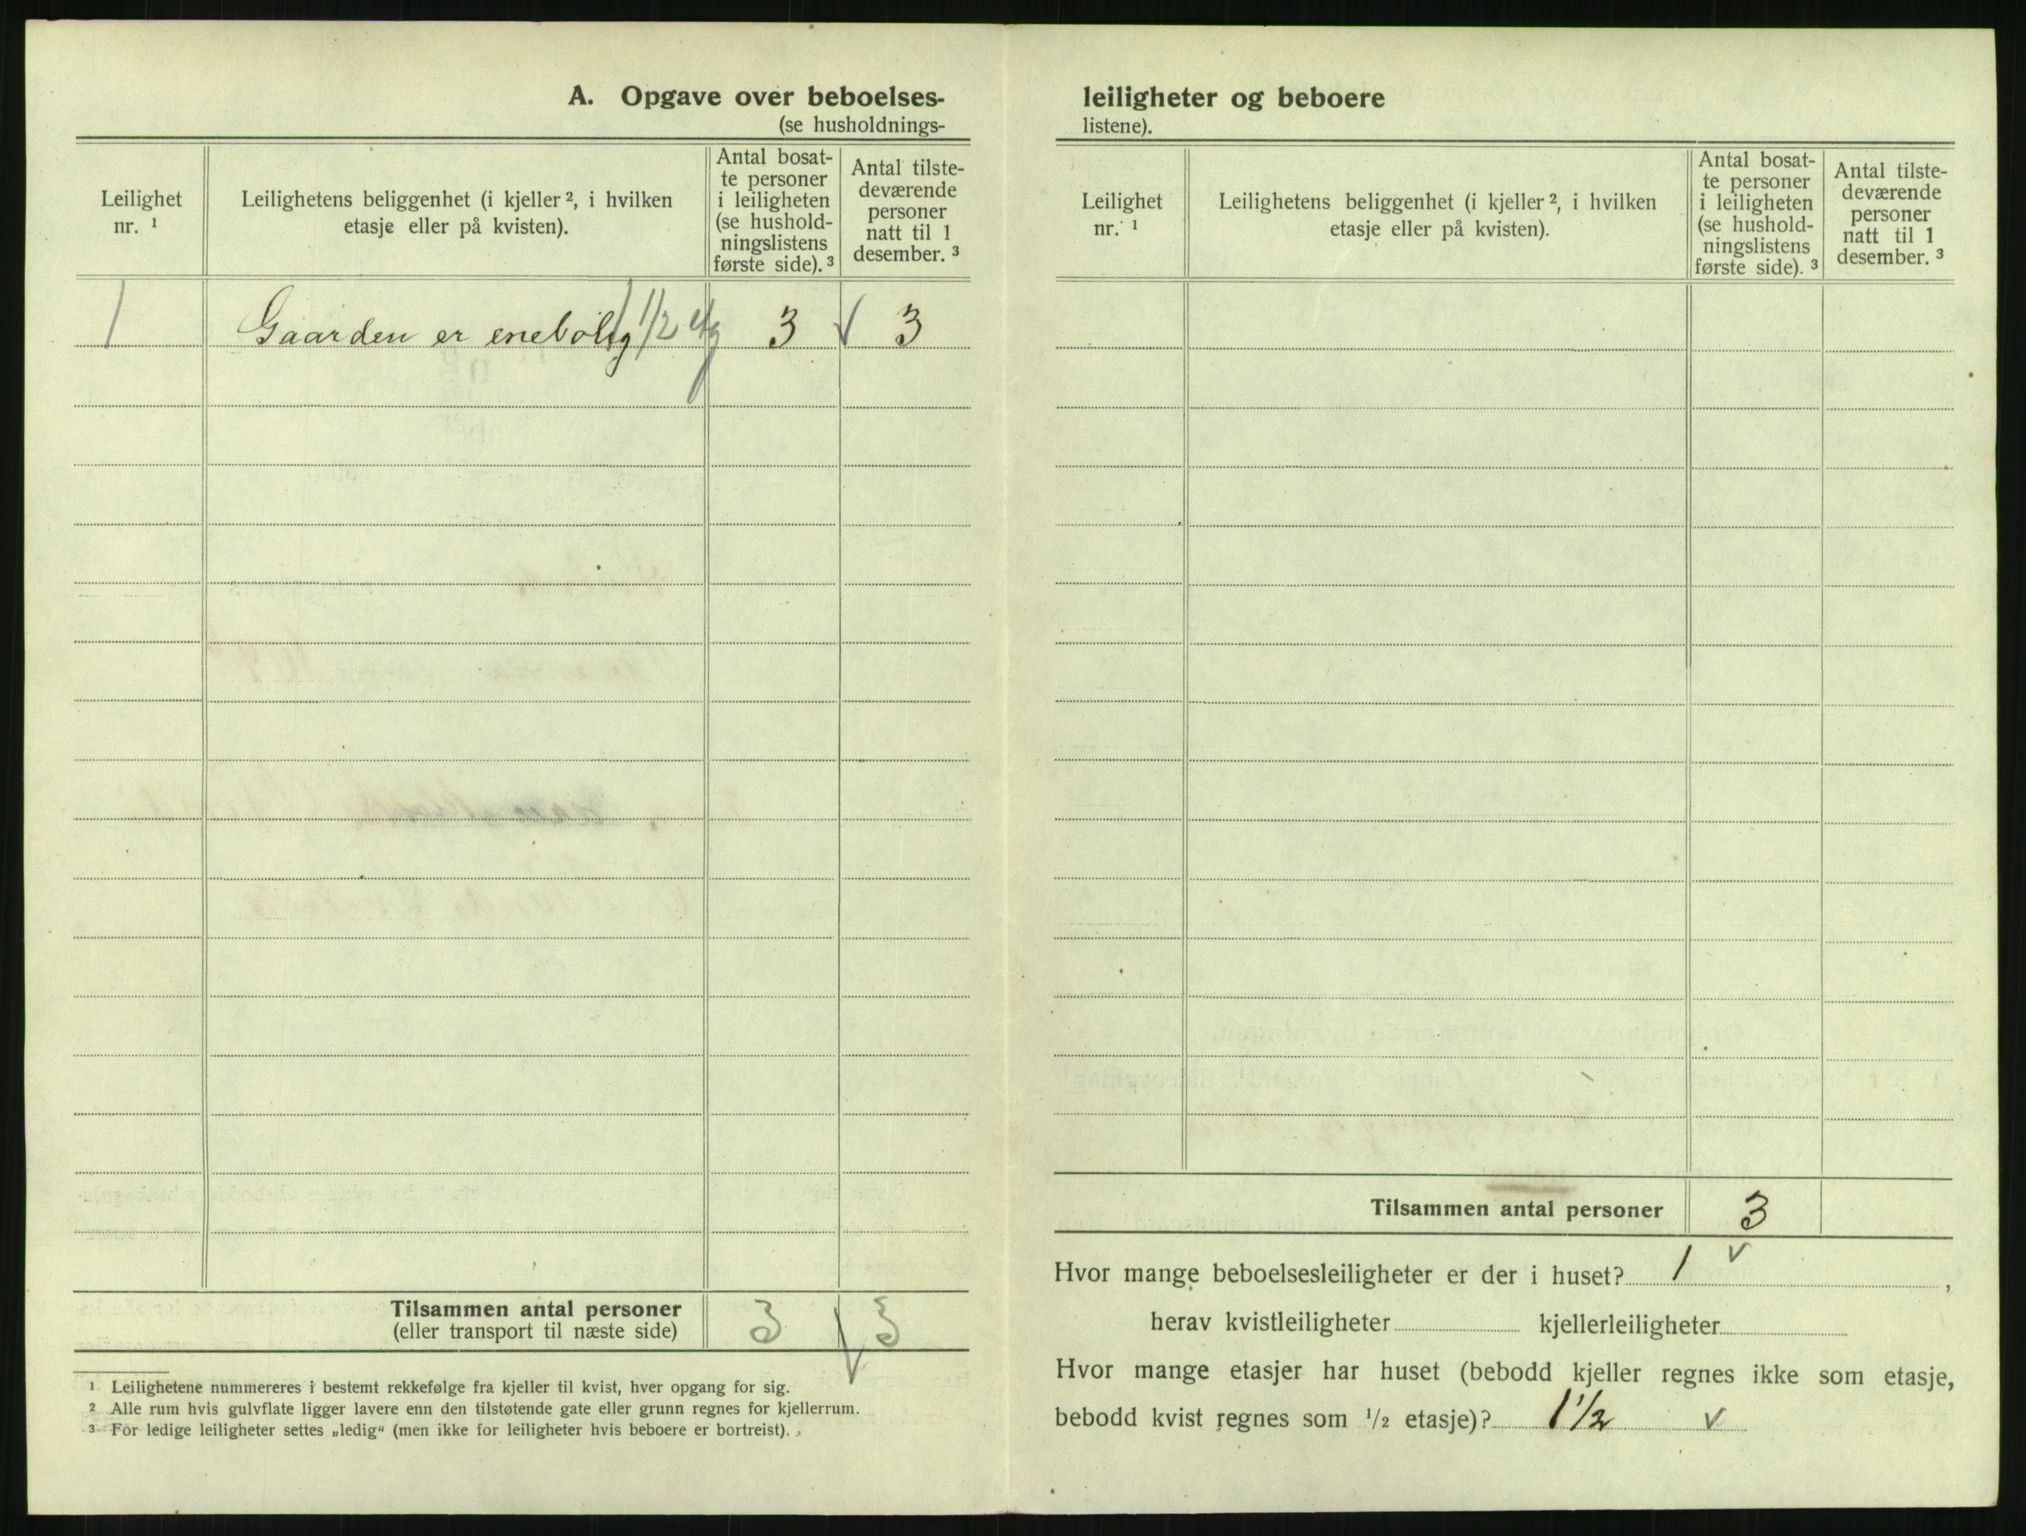 A. Opgave over beboelses-
(se husholdnings-
Leilighet
nr. ¹
Leilighetens beliggenhet (i kjeller ², i hvilken
etasje eller på kvisten).
Antal bosat-
te personer
i leiligheten
(se hushold-
ningslistens
første side). ³
Antal tilste-
deværende
personer
natt til 1
desember. ³
1 Gaarden er enebolig 1 1/2 etg 3 3
Tilsammen antal personer 3 3
(eller transport til næste side)
¹ Leilighetene nummereres i bestemt rekkefølge fra kjeller til kvist, hver opgang for sig.
² Alle rum hvis gulvflate ligger lavere enn den tilstøtende gate eller grunn regnes for kjellerrum.
³ For ledige leiligheter settes „ledig“ (men ikke for leiligheter hvis beboere er bortreist).
leiligheter og beboere
listene).
Leilighet
nr. ¹
Leilighetens beliggenhet (i kjeller ², i hvilken
etasje eller på kvisten).
Antal bosat-
te personer
i leiligheten
(se hushold-
ningslistens
første side). ³
Antal tilste-
deværende
personer
natt til 1
desember. ³
Tilsammen antal personer 3
Hvor mange beboelsesleiligheter er der i huset? 1 ,
herav kvistleiligheter kjellerleiligheter
Hvor mange etasjer har huset (bebodd kjeller regnes ikke som etasje,
bebodd kvist regnes som ¹/₂ etasje)? 1 1/2